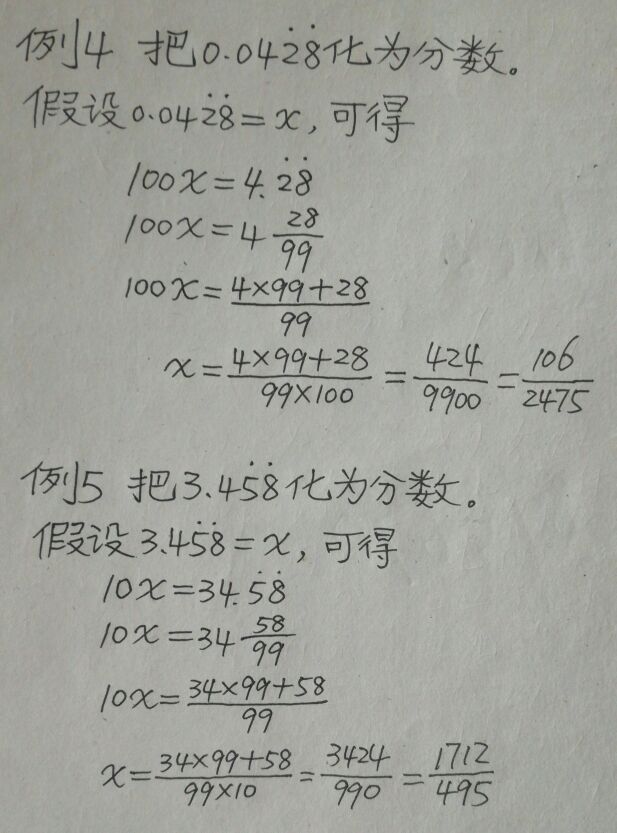 例4 把0.042̇8̇化为分数。
假设0.042̇8̇=x,可得
100x=4.2̇8̇
100x=4 28/99
100x=(4×99+28)/99
x=(4×99+28)/(99×100)=424/9900=106/2475
例5 把3.45̇8̇化为分数。
假设3.45̇8̇=x,可得
10x=34.5̇8̇
10x=34 58/99
10x=(34×99+58)/99
x=(34×99+58)/(99×10)=3424/990=1712/495